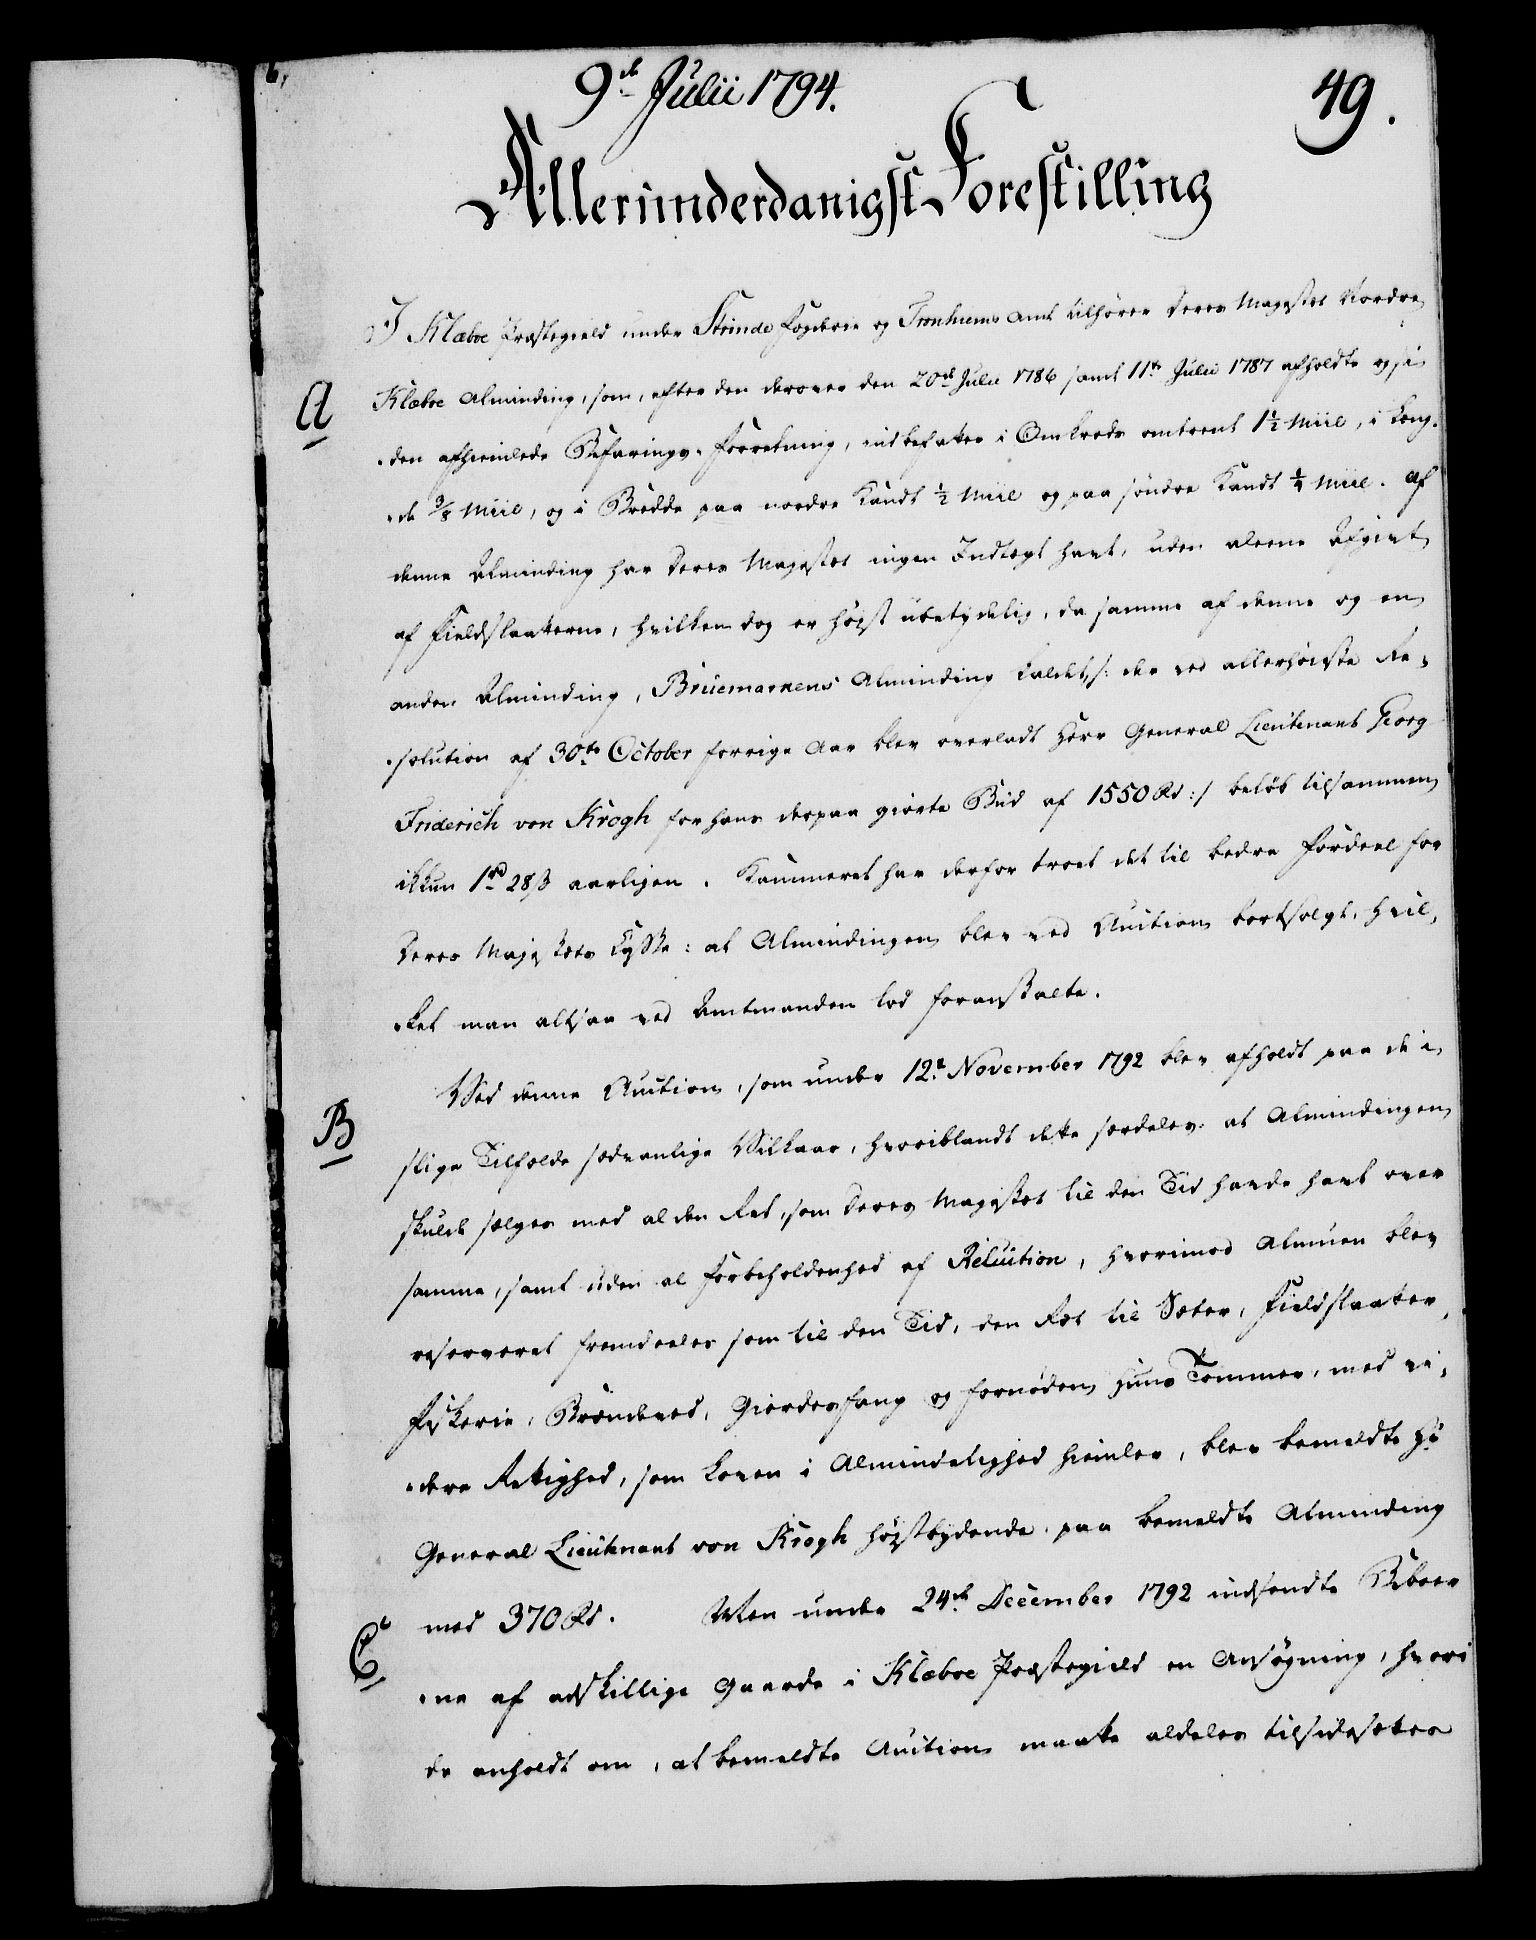 9de Julii 1794.
49.
Allerunderdanigst Forestilling
I Klæboe Præstegield under Strinde Fogderie og Tronhiems Amt tilhører Deres Majestet Nordre
A
Klæboe Alminding, som, efter den derover den 20de Julii 1786 samt 11te Julii 1787 afholdte og si-
-den afhiemlede Befarings-Forretning, indbefatter i Omkreds omtrent 1½ Miil, i Læng-
-de 3/8 Miil, og i Bredde paa nordre Kandt ½ Miil og paa søndre Kandt ¼ Miil. Af
denne Alminding har Deres Majestet ingen Indtægt havt, uden alene Afgivt
af Fieldslaatterne, hvilken dog er høist ubetydelig, da samme af denne og en
anden Alminding, Bruemarkens Alminding kaldet /: der ved allerhøieste Re-
-solution af 30te October forrige Aar blev overladt Herr General Lieutenant Georg
Friderich von Krogh for hans derpaa giorte Bud af 1550 Rd :/ beløb tilsammen
ikkun 1rd 28 ß aarligen. Kammeret har derfor troet det til bedre Fordeel for
Deres Majestets Casse: at Almindingen blev ved Auction bortsolgt, hvil-
-ket man altsaa ved Amtmanden lod foranstalte.
B
Ved denne Auction, som under 12te November 1792 blev afholdt paa de i
slige Tilfælde sædvanlige Vilkaar, hvoriblandt dette særdeles: at Almindingen
skulde sælges med al den Ret, som Deres Majestet til den Tid havde havt over
samme, samt uden al Forbeholdenhed af Reluition, hvorimod Almuen blev
reserveret fremdeeles som til den Tid, den Ret til Sæter, Fieldslaatter,
Fiskerie, Brændeved, Gierdesfang og fornøden Huus Tømmer, med vi-
-dere Rettighed, som Loven i Almindelighed hiemler, blev bemeldte Hr
General Lieutenant von Krogh høistbydende paa bemeldte Alminding
med 370 Rd. Men under 24de December 1792 indsendte Beboer
C
-ne af adskillige Gaarde i Klæboe Præstegield en Ansøgning, hvori
de anholdt om, at bemeldte Auction maatte aldeles tilsidesættes